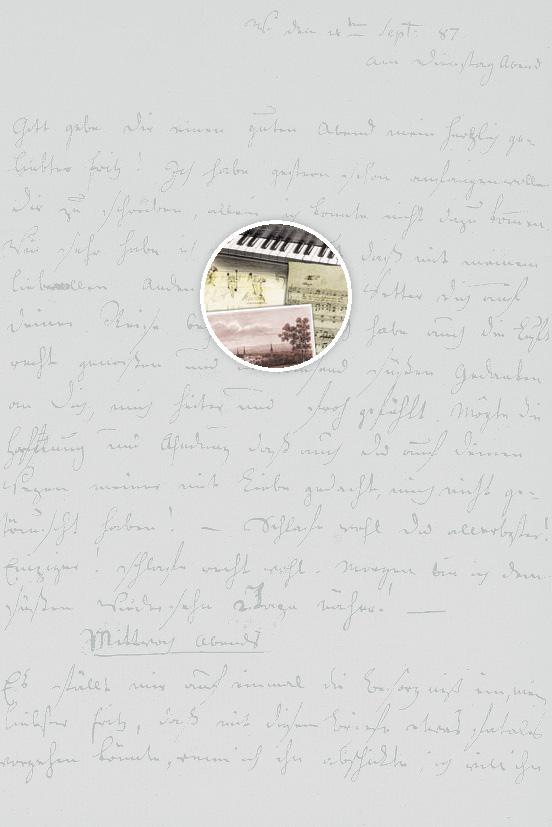 den 18ten Sept: 87
am Dienstag Abend
Gott gebe Dir einen guten Abend mein herzlich ge-
liebter Fritz! Ich habe gestern schon anfangen wollen
Dir zu schreiben, allein es konnte nicht dazu kommen
Wie sehr habe ich daß mit meinem
liebevollen Anden Wetter Dich auf
Deiner Reise be habe auch die Luft
recht genossen und süßen Gedanken
an Dich, mich heiter und froh gefühlt. Möge die
Hoffnung und Ahndung daß auch Du auf deinen
Wegen meiner mit Liebe gedacht, mich nicht ge-
täuscht haben! — Schlafe wohl Du allerbester!
Einziger! schlafe recht wohl. Morgen bin ich dem
süßen Wiedersehn 2 Tage näher! —
Mittwoch Abends
Es fällt mir auf einmal die Besorgniß ein, mein
liebster Fritz, daß mit diesem Briefe etwas fatales
vorgehen könnte, wenn ich ihn abschickte, ich will ihn